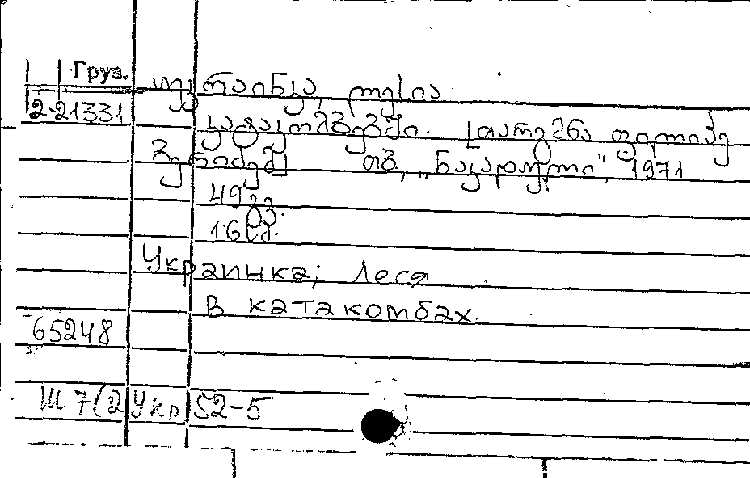 Груз.
უკრაინკა, ლესია
2-21331
კატაკომბებში. [თარგმნა
თბ., "ნაკადული", 1971
49 გვ.
16 სმ.
Украинка; Леся
В катакомбах.
65248
Ш 7(2Укр)52-5